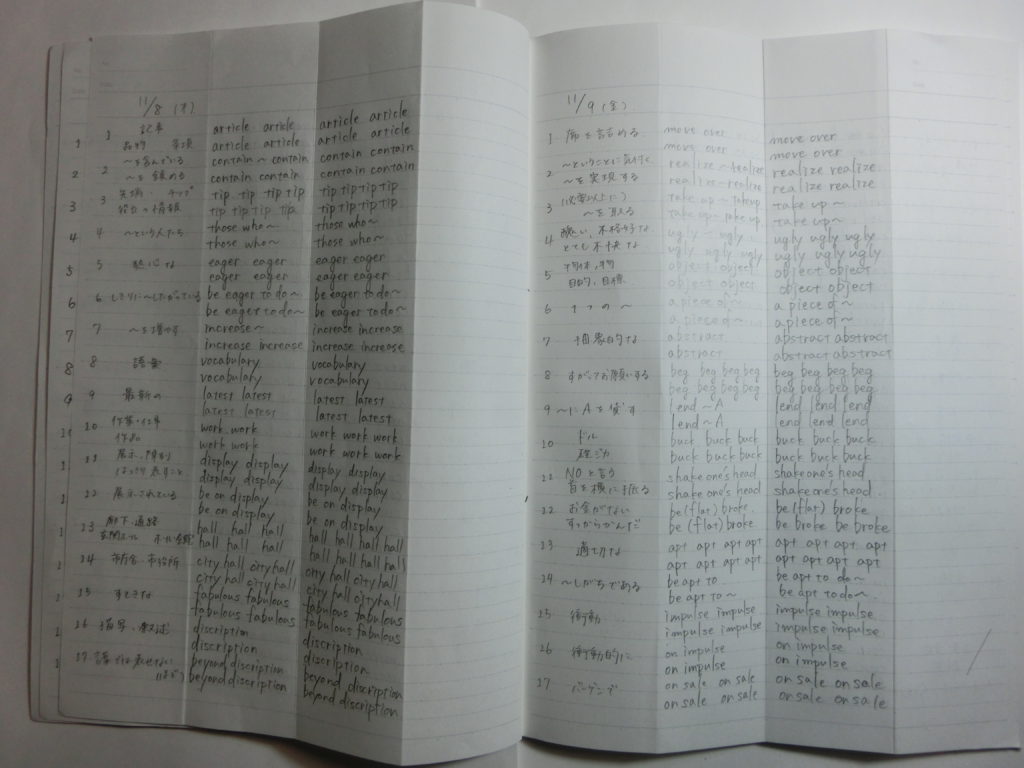 11/8 (木)
1 1 記事 article article article article
品物 事項 article article article article
2 2 ～を含んでいる contain ～ contain contain contain
～を鎮める contain contain contain contain
3 3 先端 チップ tip tip tip tip tip tip tip tip
役立つ情報 tip tip tip tip tip tip tip tip
4 4 ～という人たち those who～ those who～
those who～ those who～
5 5 熱心な eager eager eager eager
eager eager eager eager
6 6 しきりに～したがっている be eager to do～ be eager to do～
be eager to do～ be eager to do～
7 7 ～を増やす increase～ increase increase
increase increase increase increase
8 8 語彙 vocabulary vocabulary
vocabulary vocabulary
9 9 最新の latest latest latest latest
latest latest latest latest
10 作業・仕事 work work work work work
作品 work work work work work
11 展示、陳列 display display display display
はっきり表すこと display display display display
12 展示されている be on display be on display
be on display be on display
13 廊下 通路 hall hall hall hall hall hall hall
玄関ホール hall hall hall hall hall hall hall
14 市庁舎 市役所 city hall city hall city hall city hall
city hall city hall city hall city hall
15 すてきな fabulous fabulous fabulous fabulous
fabulous fabulous fabulous fabulous
16 描写、叙述 discription discription
discription discription
17 言葉では表せない beyond discription beyond discription
ほど beyond discription beyond discription
11/9 (金)
1 席を詰める move over move over
move over move over
2 ～ということに気付く realize ～ realize realize realize
～を実現する realize ～ realize realize realize
3 (必要以上に) take up ～ take up take up～
～を取る take up take up take up～
4 醜い、不格好な ugly ugly ugly ugly ugly
とても不快な ugly ugly ugly ugly ugly ugly
5 物体、物 object object object object
目的、目標 object object object object
6 1つの～ a piece of～ a piece of～
a piece of～ a piece of～
7 抽象的な abstract abstract abstract
abstract abstract abstract
8 すがってお願いする beg beg beg beg beg beg beg beg
beg beg beg beg beg beg beg beg
9 ～にAを貸す lend ～ A lend lend lend
lend ～ A lend lend lend
10 ドル buck buck buck buck buck buck
buck buck buck buck buck buck
11 NOと言う shake one's head shake one's head
首を横に振る shake one's head shake one's head
12 お金がない be (flat) broke be (flat) broke
すっからかんだ be (flat) broke be broke be broke
13 適切な apt apt apt apt apt apt apt apt
apt apt apt apt apt apt apt apt
14 ～しがちである be apt to be apt to do～
be apt to～ be apt to do～
15 衝動 impulse impulse impulse impulse
impulse impulse impulse impulse
16 衝動的に on impulse on impulse
on impulse on impulse
17 バーゲンで on sale on sale on sale on sale
on sale on sale on sale on sale